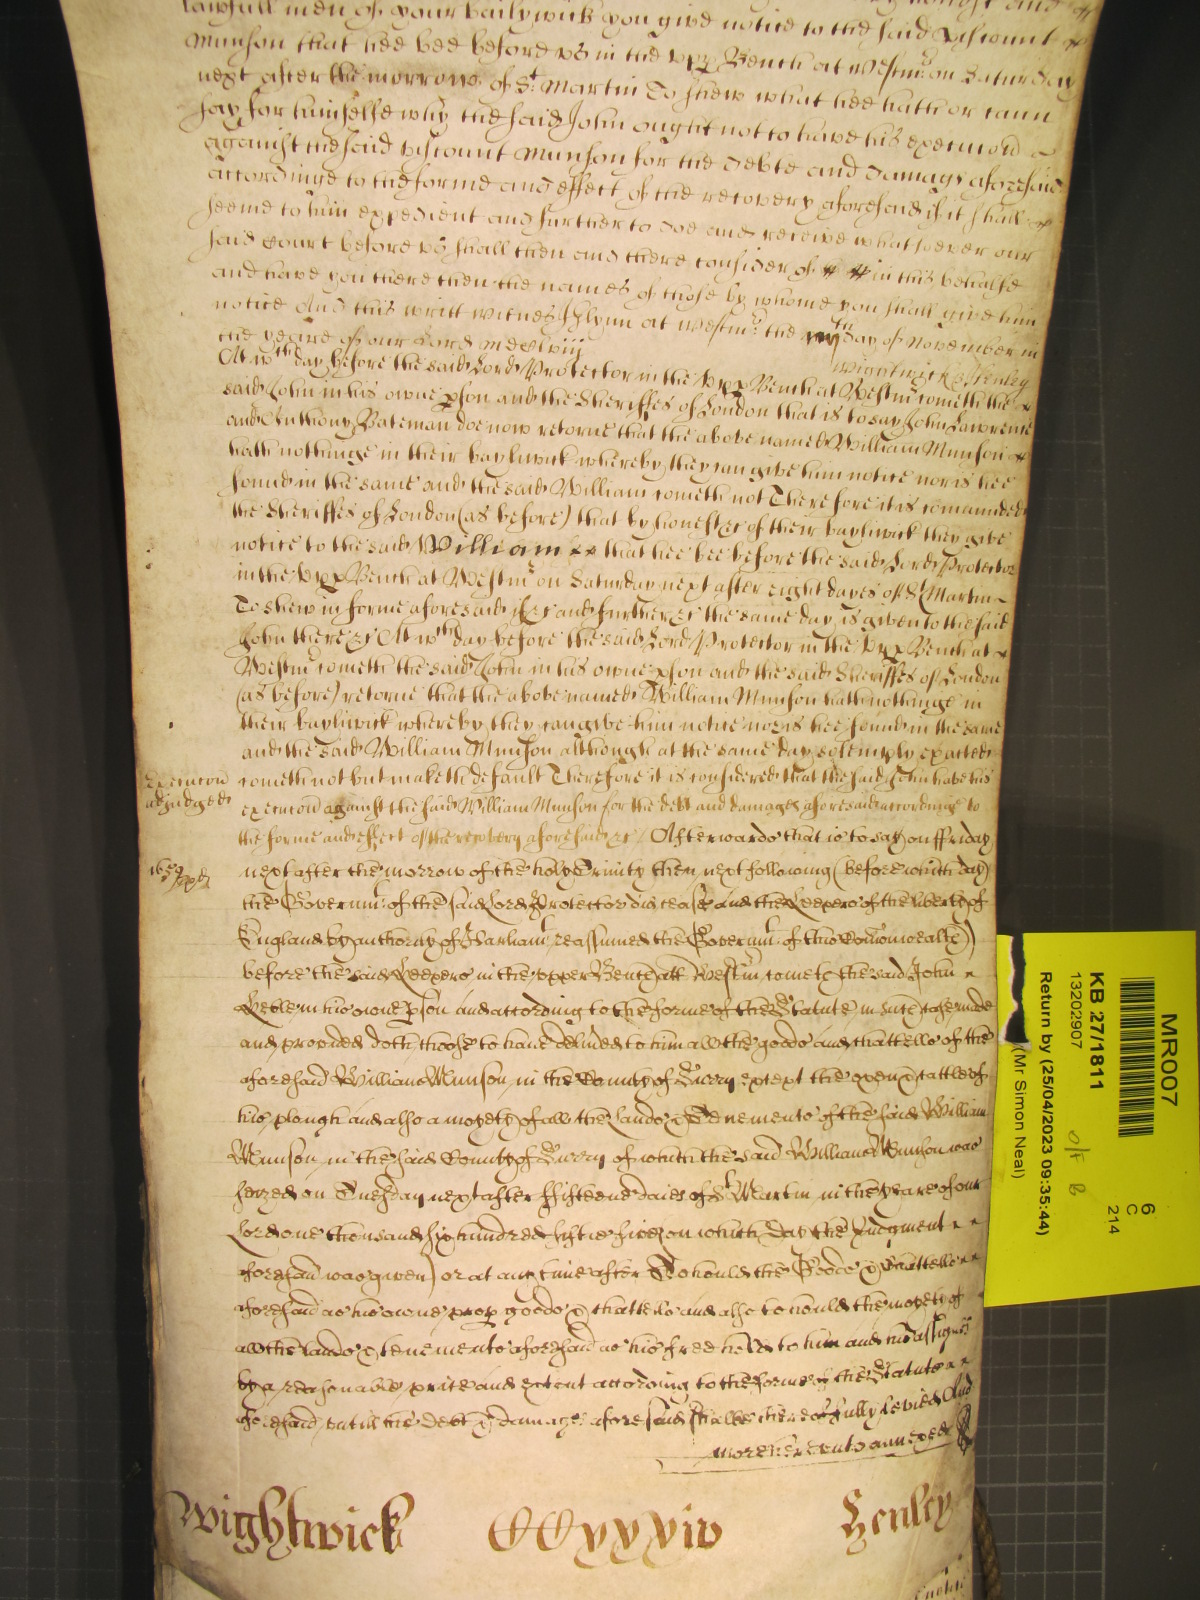 lawfull men of your bailywick you give notice to the said Viscount
Munson that hee bee before us in the upp Bench at Westmr on Saturday
next after the morrow of St Martin To shew what hee hath or cann
say for himselfe why the said John ought not to have his execucion
against the said Viscount Munson for the debte and damags aforesaid
accordinge to the forme and effect of the recovery aforesaid if it shall
seeme to him expedient and further to doe and receive whatsoever our
said Court before us shall then and there consider of in this behalfe
and have you there then the names of those by whome you shall give him
notice And this writt witnes J Glynn at Westmr the day of November in
the yeare of our Lord MDCLviij
Wightwick & Henley
At wch day before the said Lord Protector in the upp Bench at Westmr cometh the
said John in his owne pson and the Sheriffes of London that is to say John Lawrence
and Anthony Bateman doe now retorne that the above named William Munson
hath nothinge in their bayliwick whereby they can give him notice nor is hee
found in the same and the said William cometh not Therefore it is comaunded
the Sheriffes of London (as before) that by honest &c of their bayliwick they give
notice to the said William that hee bee before the said Lord Protector
in the upp Bench at Westmr on Saturday next after eight dayes of St Martin
To shew in forme aforesaid if &c and further &c the same day is given to the said
John there &c At wch day before the said Lord Protector in the upp Bench at
Westmr cometh the said John in his owne pson and the said Sheriffes of London
(as before) retorne that the above named William Munson hath nothinge in
their bayliwick whereby they can give him notice nor is hee found in the same
and the said William Munson although at the same day solemply exacted
Execucion
adjudged
cometh not but maketh default Therefore it is considered that the said John have his
execucion against the said William Munson for the debt and damages aforesaid accordinge to
the forme and effect of the recovery aforesaid &c Afterwards that is to say on ffriday
1659
next after the morrow of the holy Trinity then next following (before which day
the Governmt of the said Lord Protector did cease And the Keepers of the liberty of
England by authority of Parliamt reassumed the Governmt of this Comonwealth)
before the said Keepers in the upper Bench att Westmr cometh the said John
in his owne pson and according to the forme of the Statute in such case made
and provided doth choose to have delivered to him all the goods and chattells of the
aforesaid William Munson in the County of Surrey except the oxen & cattle of
his plough and also a moyety of all the lands & Tenements of the said William
Munson in the said County of Surrey of which the said William Munson was
seized on Tuesday next after ffifteene daies of St Martin in the yeare of our
Lord one thousand six hundred fiftie five (on which day the Judgment
aforesaid was given) or at any time after To hould the Goods & Chattells
aforesaid as his owne prop goods & chattells and also to hould the moyety of
all the lands & tenements aforesaid as his free hold to him and his assignes
by a reasonable price and extent according to the forme of the Statute
aforesaid untill the debt & damages aforesaid shalbe thereof fully levied And
more hereunto annexed
Wightwick CCxxxiv Henley
MR007
6
C
214
KB 27/1811
13202907
Return by (25/04/2023 09:35:44)
(Mr Simon Neal)
O/F B